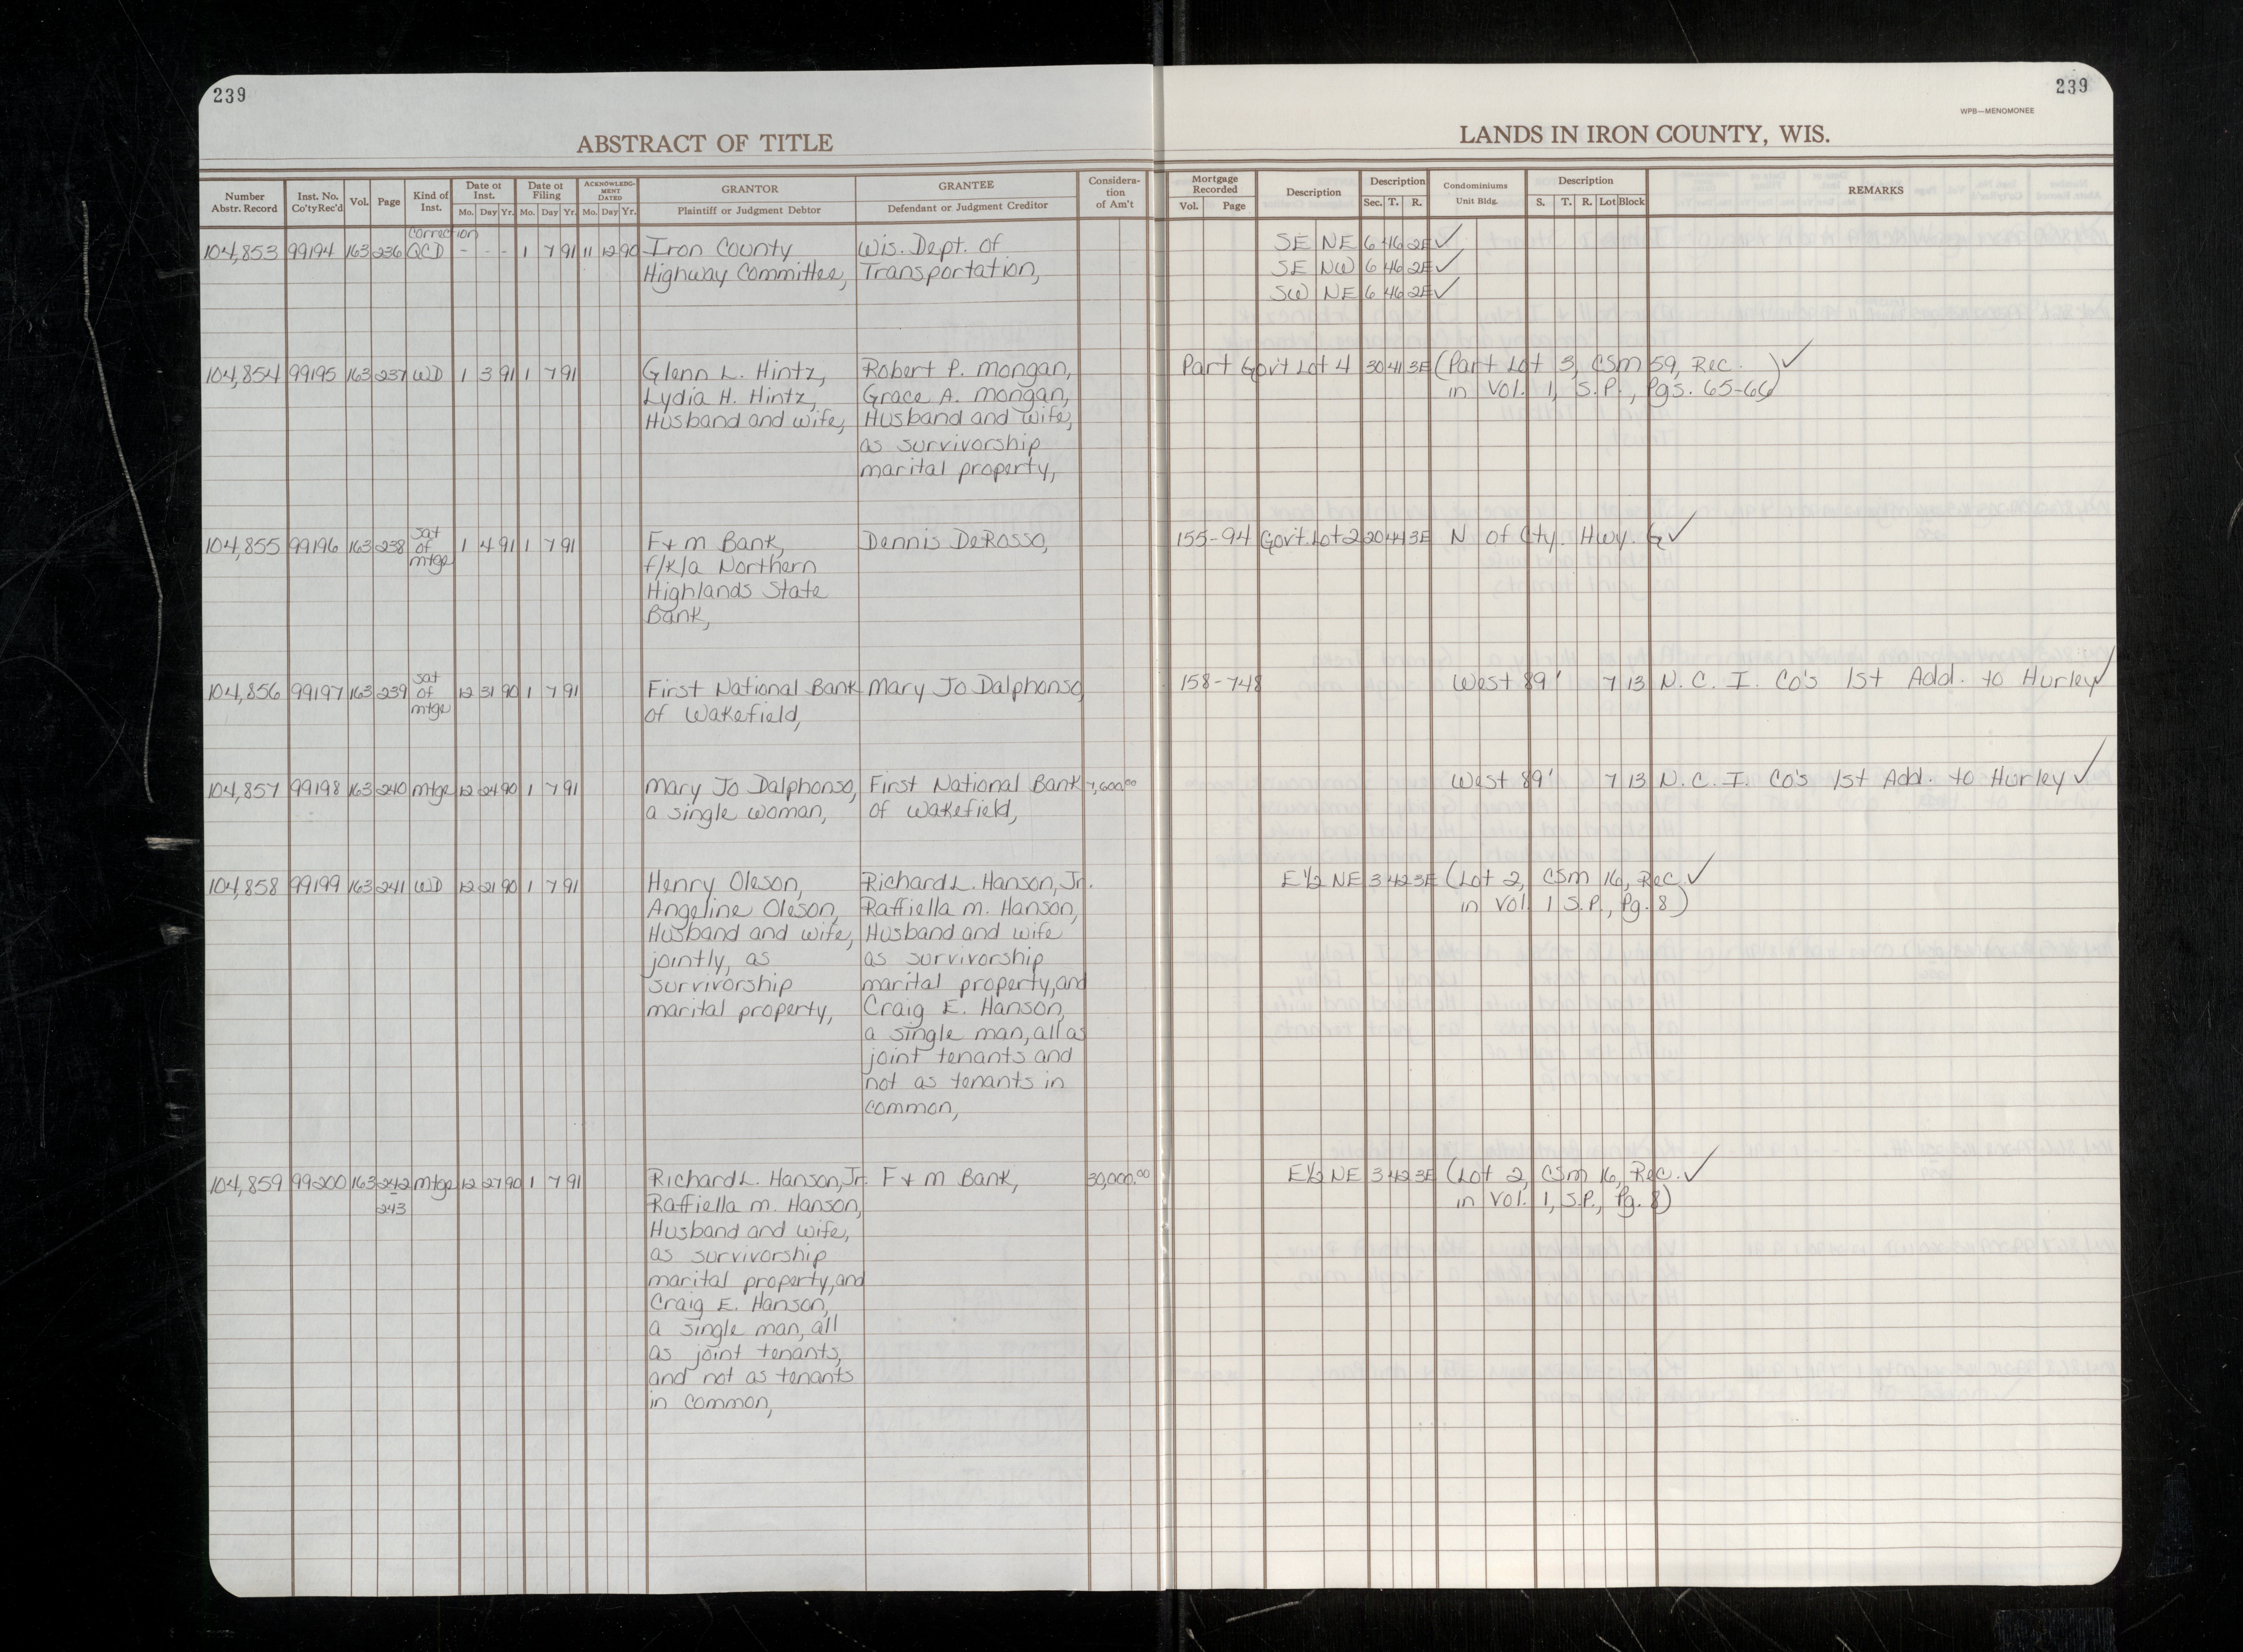 239
239
WPB—MENOMONEE
ABSTRACT OF TITLE
LANDS IN IRON COUNTY, WIS.
Number Abstr. Record | Inst. No. Co'ty Rec'd | Vol. | Page | Kind of Inst. | Date of Inst. Mo. Day Yr. | Date of Filing Mo. Day Yr. | ACKNOWLEDGMENT DATED Mo. Day Yr. | GRANTOR Plaintiff or Judgment Debtor | GRANTEE Defendant or Judgment Creditor | Consideration of Am't | Mortgage Recorded Vol. Page | Description | Description Sec. T. R. | Condominiums Unit Bldg. | Description S. T. R. Lot Block | REMARKS
Correction
104,853 99194 163 236 QCD - - - 1 7 91 11 12 90 Iron County Wis. Dept. of SE NE 6 46 2E ✓
Highway Committee, Transportation, SE NW 6 46 2E ✓
SW NE 6 46 2E ✓
104,854 99195 163 237 WD 1 3 91 1 7 91 Glenn L. Hintz, Robert P. Mongan, Part Gov't Lot 4 30 41 3E (Part Lot 3, CSM 59, Rec. ✓
Lydia H. Hintz, Grace A. Mongan, in Vol. 1, S.P., Pgs. 65-66)
Husband and wife, Husband and wife,
as survivorship
marital property,
104,855 99196 163 238 Sat of mtge 1 4 91 1 7 91 F + M Bank, Dennis DeRosso, 155-94 Gov't. Lot 2 20 44 3E N of Cty. Hwy. G ✓
f/k/a Northern
Highlands State
Bank,
104,856 99197 163 239 Sat of mtge 12 31 90 1 7 91 First National Bank Mary Jo Dalphonso, 158-748 West 89' 7 13 N. C. I. Co's 1st Add. to Hurley ✓
of Wakefield,
104,857 99198 163 240 mtge 12 24 90 1 7 91 Mary Jo Dalphonso, First National Bank 7,600.00 West 89' 7 13 N. C. I. Co's 1st Add. to Hurley ✓
a single woman, of Wakefield,
104,858 99199 163 241 WD 12 21 90 1 7 91 Henry Oleson, Richard L. Hanson, Jr. E½ NE 3 42 3E (Lot 2, CSM 16, Rec. ✓
Angeline Oleson, Raffiella M. Hanson, in Vol. 1 S.P., Pg. 8)
Husband and wife, Husband and wife
jointly, as as survivorship
survivorship marital property, and
marital property, Craig E. Hanson,
a single man, all as
joint tenants and
not as tenants in
common,
104,859 99200 163 242 mtge 12 27 90 1 7 91 Richard L. Hanson, Jr. F + M Bank, 30,000.00 E½ NE 3 42 3E (Lot 2, CSM 16, Rec. ✓
243 Raffiella M. Hanson, in Vol. 1, S.P., Pg. 8)
Husband and wife,
as survivorship
marital property, and
Craig E. Hanson,
a single man, all
as joint tenants,
and not as tenants
in common,